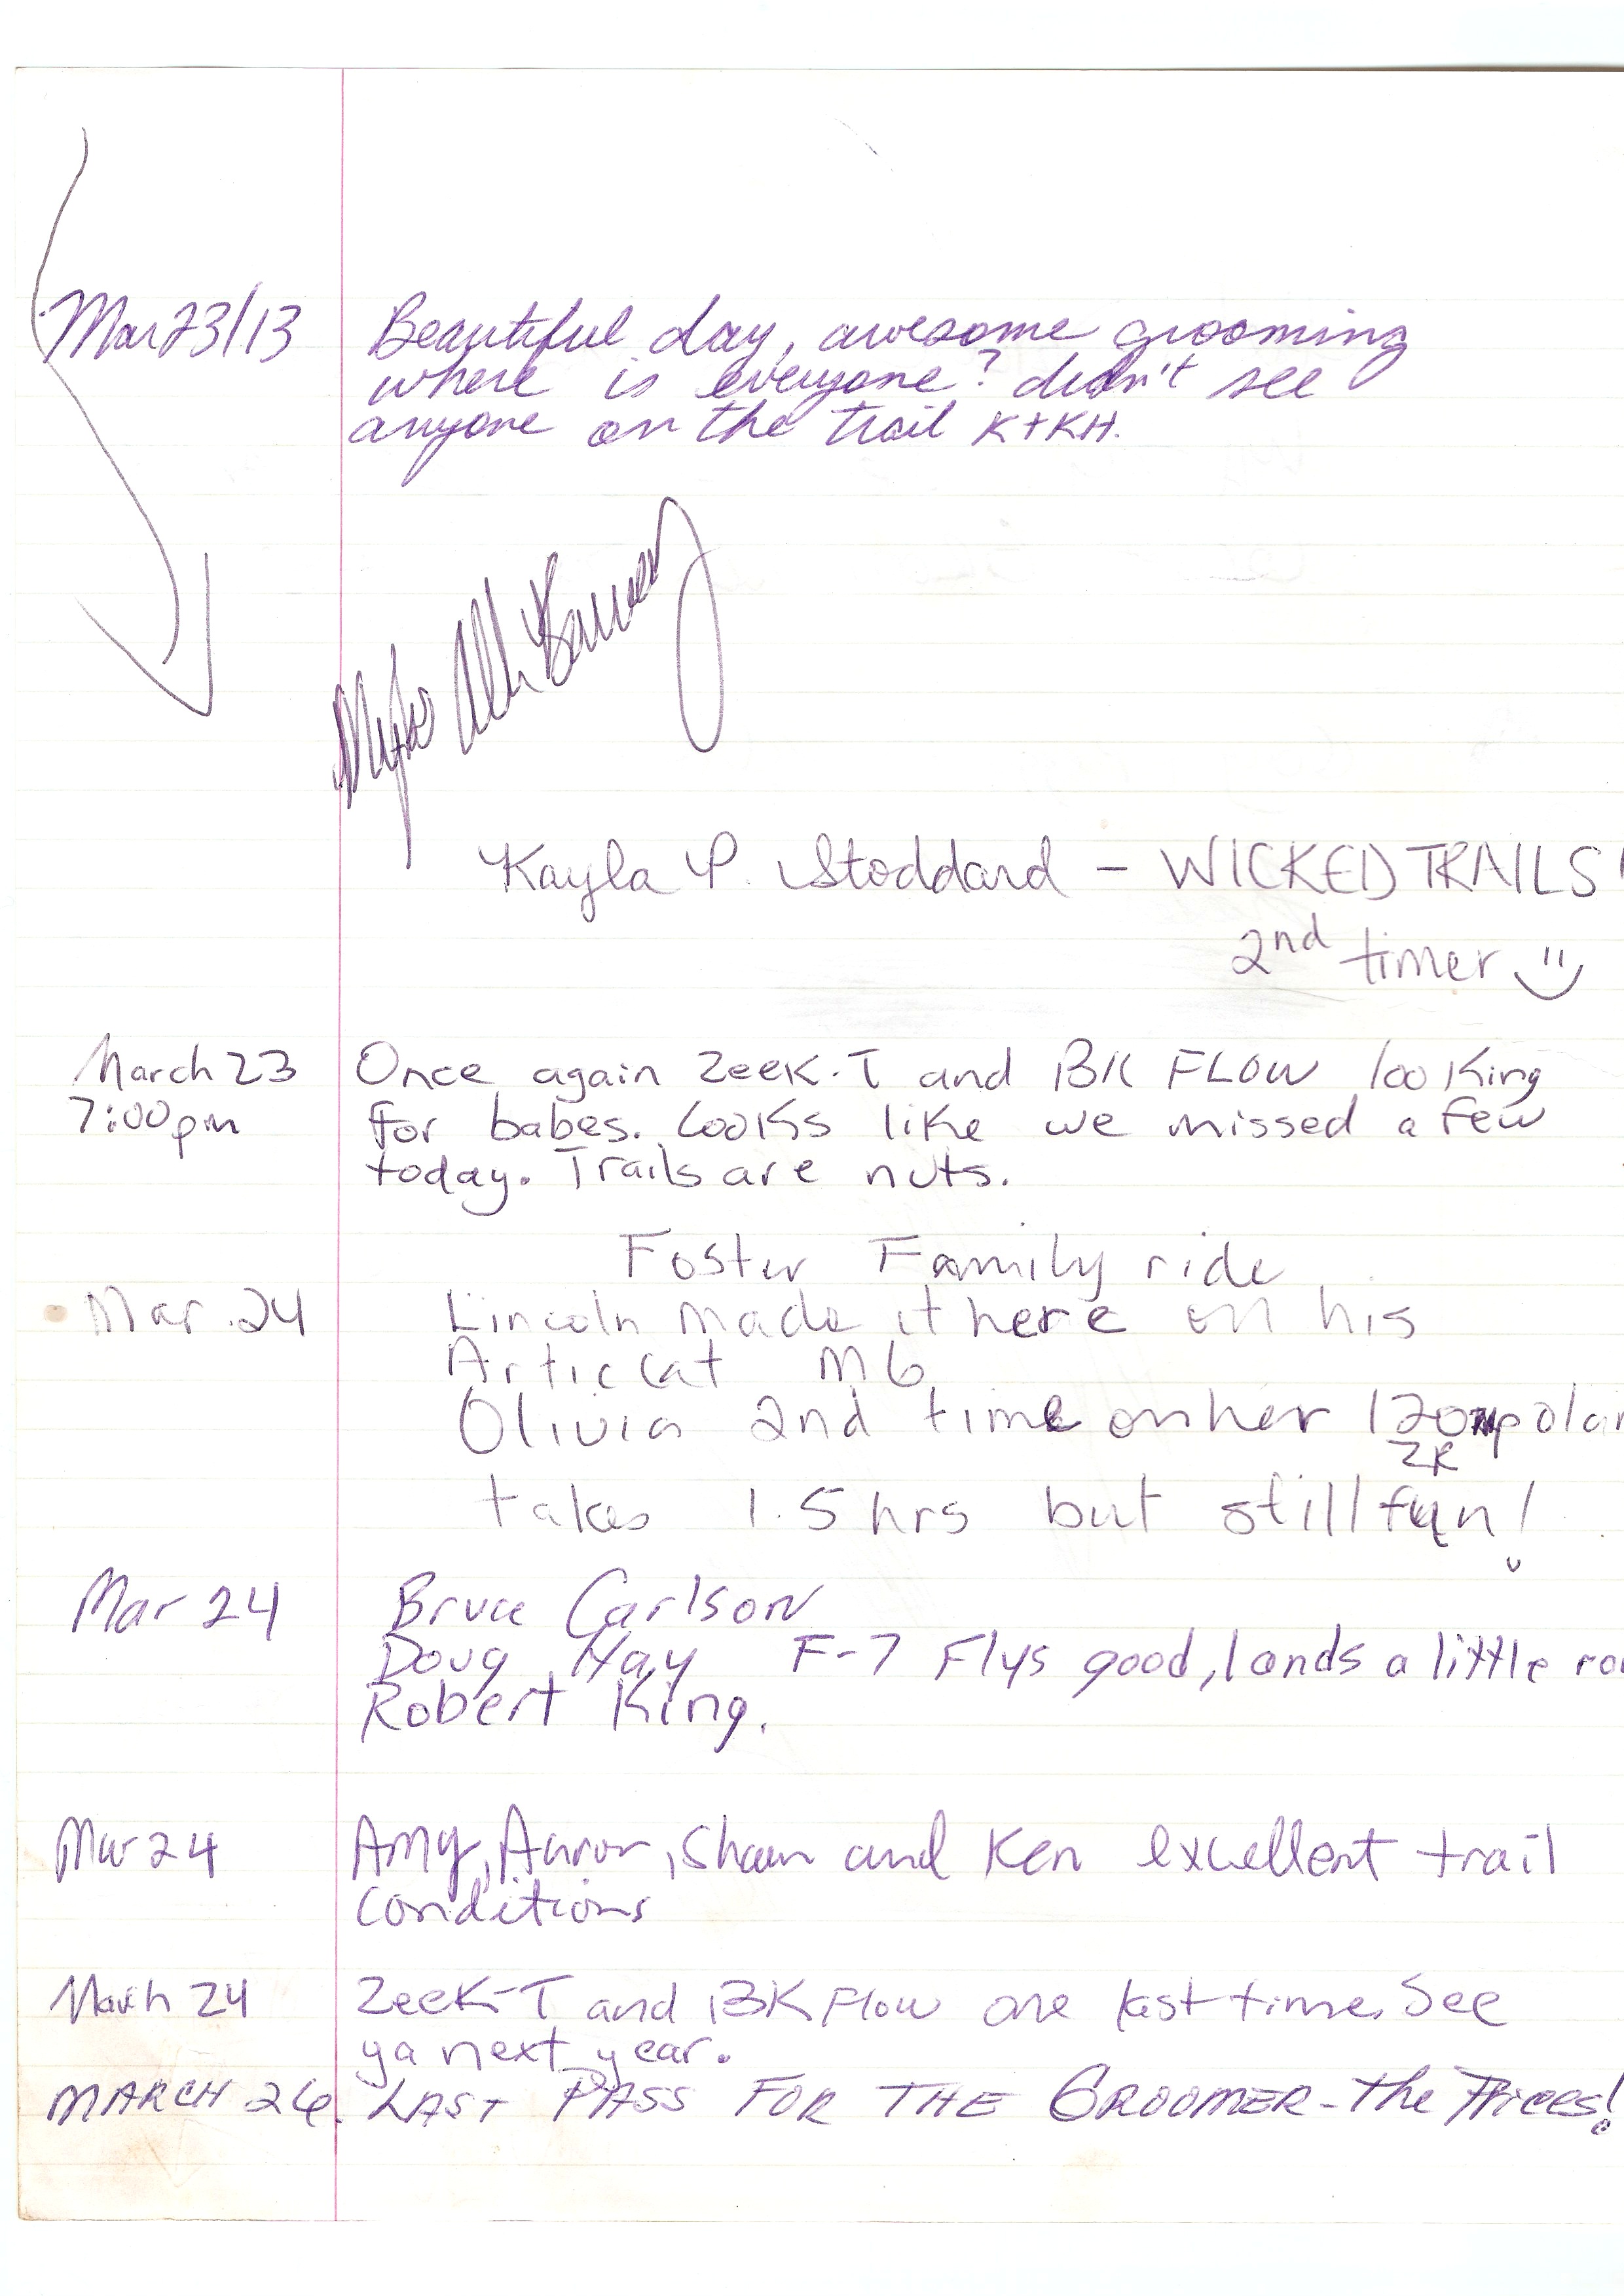 Mar 23/13 Beautiful day, awesome grooming
where is everyone? didn't see
anyone on the trail K+KH.
Kayla P. Stoddard - WICKED TRAILS
2nd timer
March 23 Once again Zeek-T and BK FLOW looking
7:00pm for babes. Looks like we missed a few
today. Trails are nuts.
Foster Family ride
Mar. 24 Lincoln made it here on his
Artic Cat M6
Olivia 2nd time on her 120 polar
takes 1.5 hrs but still fun!
Mar 24 Bruce Carlson
Doug Hay F-7 Flys good, lands a little
Robert King.
Mar 24 Amy, Aaron, Shawn and Ken excellent trail
conditions
March 24 Zeek-T and BK Flow one last time. See
ya next year.
MARCH 26. LAST PASS FOR THE GROOMER - The